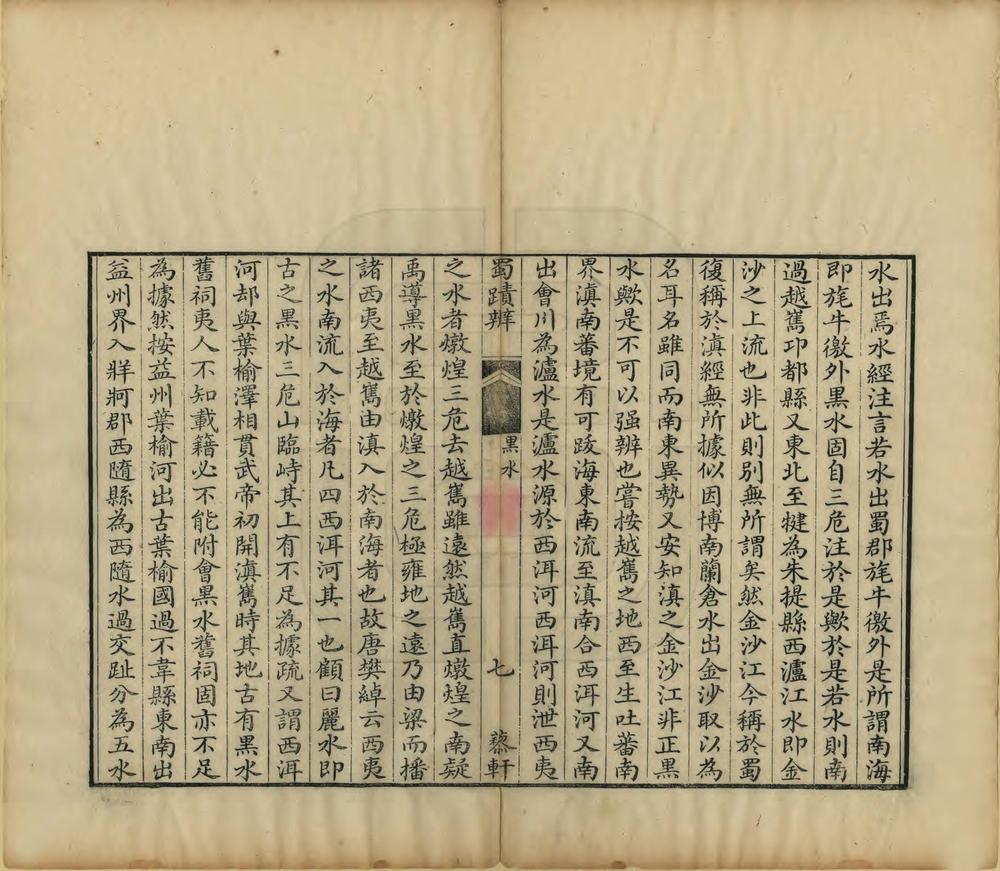 水出焉水經注言若水出蜀郡旄牛徼外是所謂南海
即旄牛徼外黑水固自三危注於是歟於是若水則南
過越嶲邛都縣又東北至犍為朱提縣西瀘江水即金
沙之上流也非此則別無所謂矣然金沙江今稱於蜀
復稱於滇經無所據似因博南蘭倉水出金沙取以為
名耳名雖同而南東異勢又安知滇之金沙江非正黑
水歟是不可以强辨也嘗按越嶲之地西至生吐蕃南
界滇南蕃境有可跋海東南流至滇南合西洱河又南
出會川為瀘水是瀘水源於西洱河西洱河則泄西夷
蜀蹟辨 黑水 七 藜軒
之水者燉煌三危去越嶲雖遠然越嶲直燉煌之南疑
禹導黑水至於燉煌之三危極雍地之遠乃由梁而播
諸西夷至越嶲由滇入於南海者也故唐樊綽云西夷
之水南流入於海者凡四西洱河其一也顧曰麗水即
古之黑水三危山臨峙其上有不足為據疏又謂西洱
河却與葉榆澤相貫武帝初開滇嶲時其地古有黑水
舊祠夷人不知載籍必不能附會黑水舊祠固亦不足
為據然按益州葉榆河出古葉榆國過不韋縣東南出
益州界入牂牁郡西隨縣為西隨水過交趾分為五水